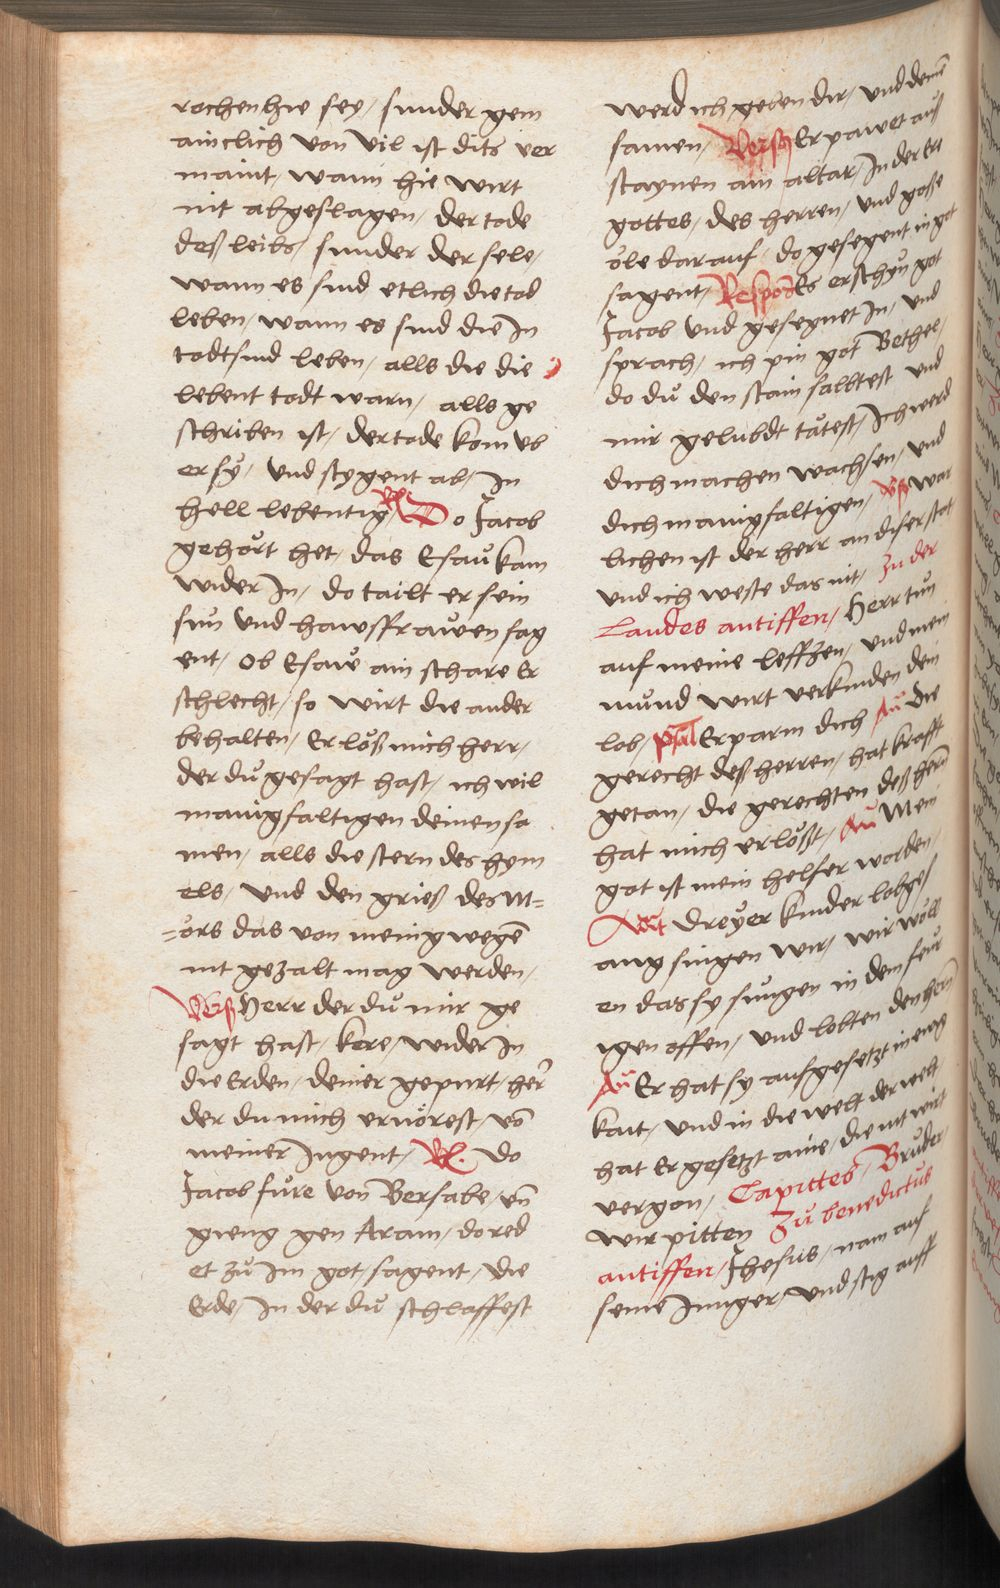 rochen hie sey / sunder gem
ainclich von vil ist dits ver
maint / wann hie wirt
nit abgeslagen / der tode
deß leibs / sunder der sele /
wann es sind etlich die tod
leben / wann es sind die In
todtsund leben / alls die die
lebent todt warn / alls ge
schriben ist / der tode kom vb
er sy / vnd stygent ab / In
hell lebentig / R Do Jacob
gehört het / das Esau kam
wider In / do tailt er sein
sun vnd hawsfrawen sag
ent / Ob Esaw ain schare Er
schlecht / so wirt die ander
behalten / Erlöß mich herr /
der du gesagt hast / ich wil
manigfaltigen deinen sa
men / alls die stern des hym
els / vnd den grieß des M=
=örs das von menig wegē
nit gezalt mag werden /
Verß Herr der du mir ge
sagt hast / kere / wider In
die Erden / deiner gepurt / her
der du mich ernörest / vō
meiner Jugent / R. Do
Jacob fure von Bersabe / vn̄
gieng gen Aram / do red
et zu Im got / sagent / die
Erde / In der du schlaffest
werd ich geben dir / vnd deinē
samen / Verß Er pawet auß
staynen ain altar / In der Ere
gottes / des herren / vnd goße
öle darauf / do gesegent in got
sagent / Respōs Es erschyn got
Jacob vnd gesegnet In / vnd
sprach / ich pin got Bethel /
do du den stain salbtest vnd
mir gelubdt tätest / Ich werd
dich machen wachsen / vnd
dich manigfaltigen / Vß War
lichen ist der herr an diser stat
vnd ich weste das nit / Zu der
Laudes antiffen / Herr tun
auf meine leffzen / vnd mein
mund wirt verkunden dein
lob / psal Erparm dich An̄ Die
gerecht deß herren / hat krafft
getan / die gerechten deß herrn
hat mich erlößt / An̄ Mein
got ist mein helfer worden /
Mit dreyer kinder lobges
ang singen wir / wir wöll
en das sy sungen in dem feur
igen offen / vnd lobten den hern
An̄ Er hat sy aufgesetzt in ewig
kait / vnd in die welt der welt
hat Er gesetzt aine / die nit wirt
vergan / Capittes / Bruder
wir pitten Zu benedictus
antiffen / Jhesus / nam auf
seine Junger / vnd stig auff